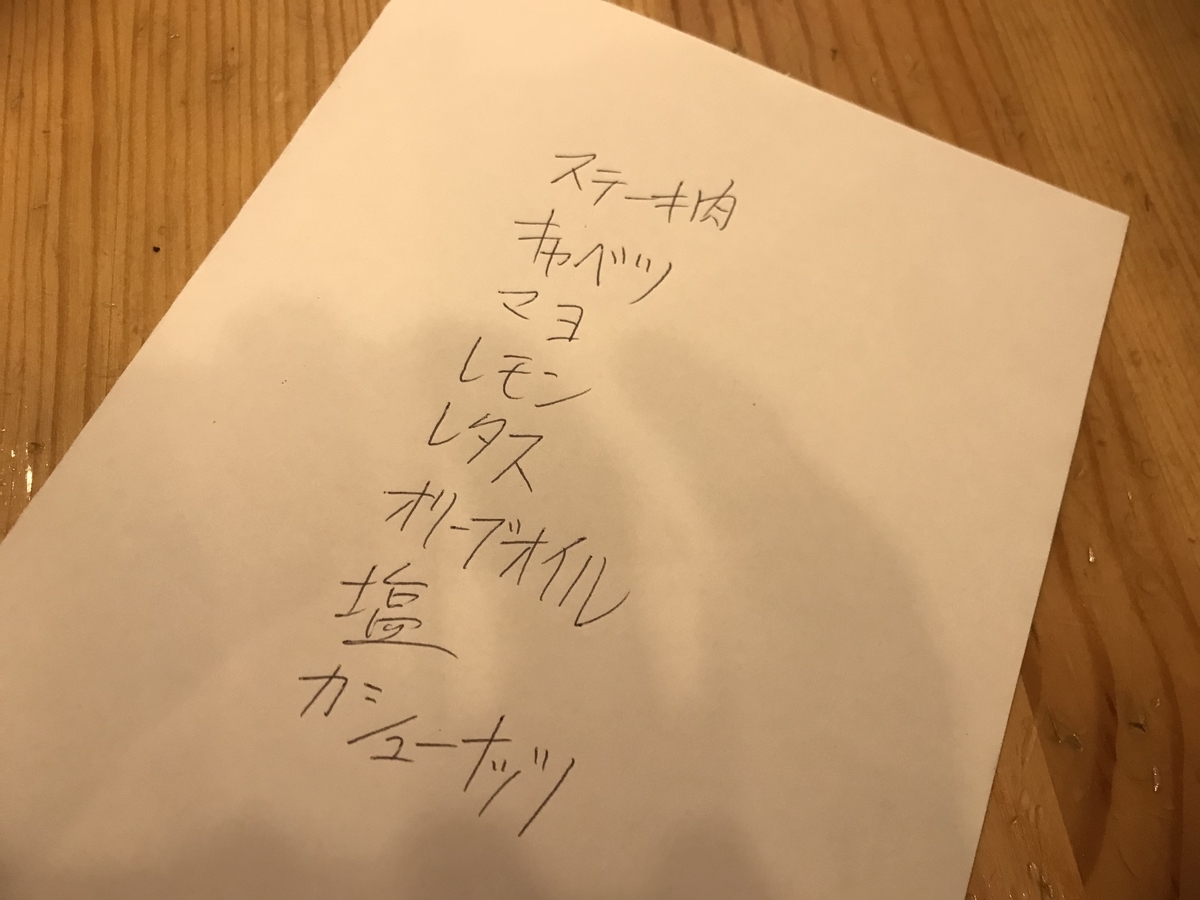 ステーキ肉
キャベツ
マヨ
レモン
レタス
オリーブオイル
塩
カシューナッツ